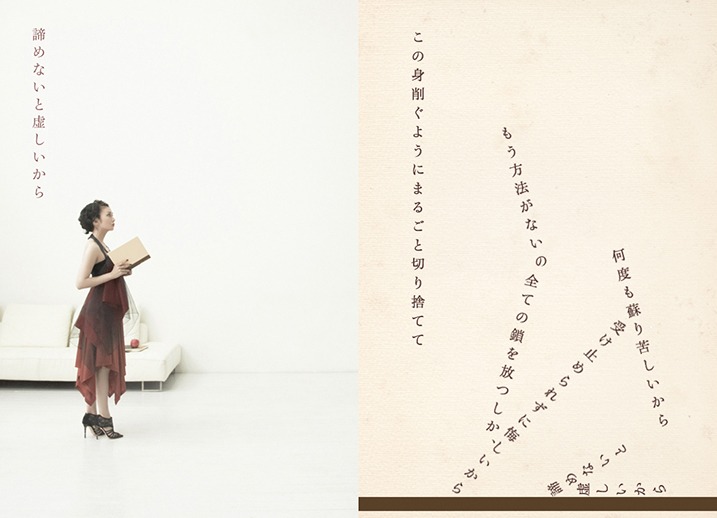 諦めないと虚しいから
この身削ぐようにまるごと切り捨てて
何度も蘇り苦しいから
もう方法がないの全ての鎖を放つしか
受け止められずに悔しいから
諦めないと
虚しいから